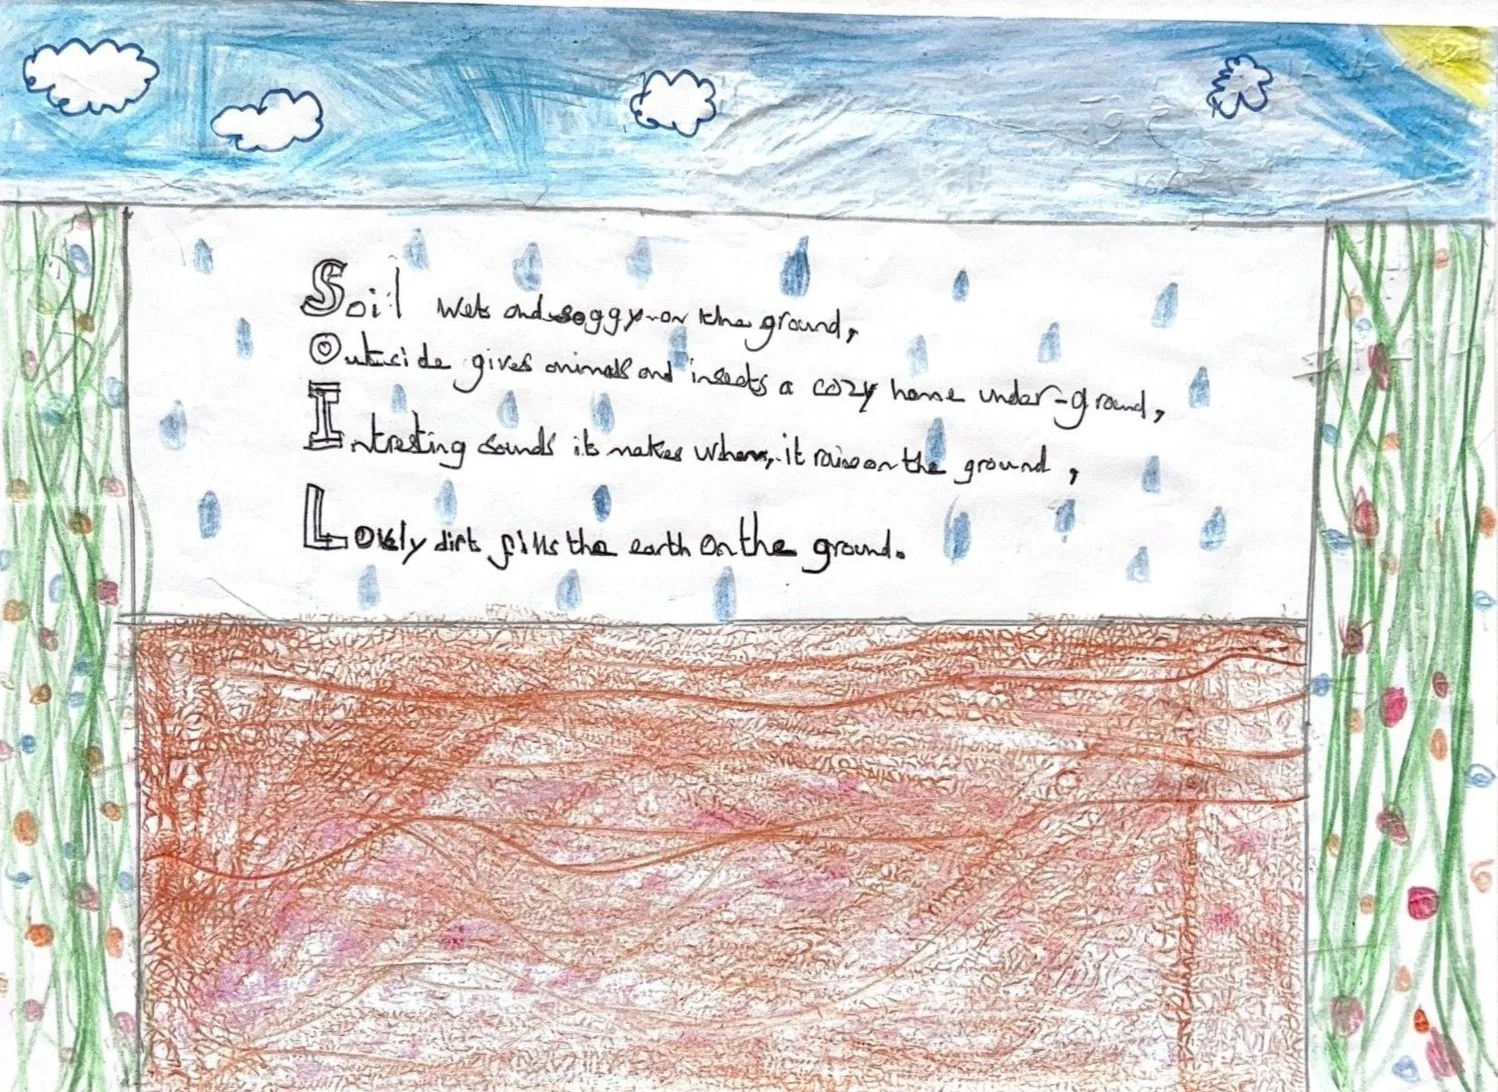 Soil wet and soggy on the ground,
Outside gives animals and insects a cozy home under-ground,
Intresting sounds it makes when, it rains on the ground,
Lovely dirt fills the earth on the ground.